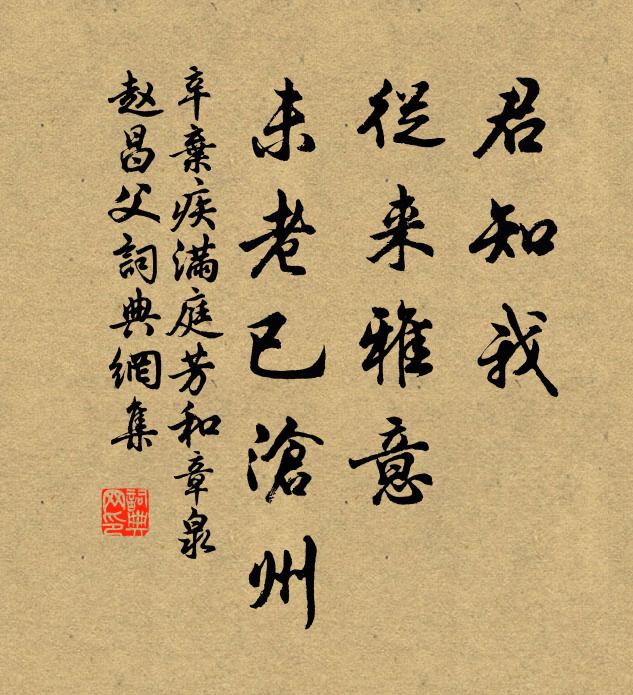 君知我
從来雅意
未老已滄州
辛棄疾滿庭芳和章泉
趙昌父詞典網集
詞典网印